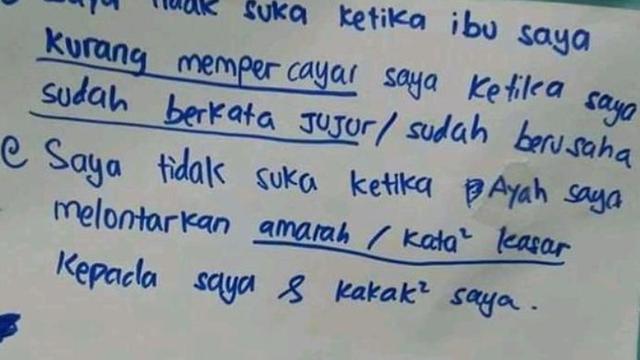 Saya tidak suka ketika ibu saya
kurang mempercayai saya ketika saya
sudah berkata jujur / sudah berusaha
Saya tidak suka ketika Ayah saya
melontarkan amarah / kata² kasar
kepada saya & kakak² saya.